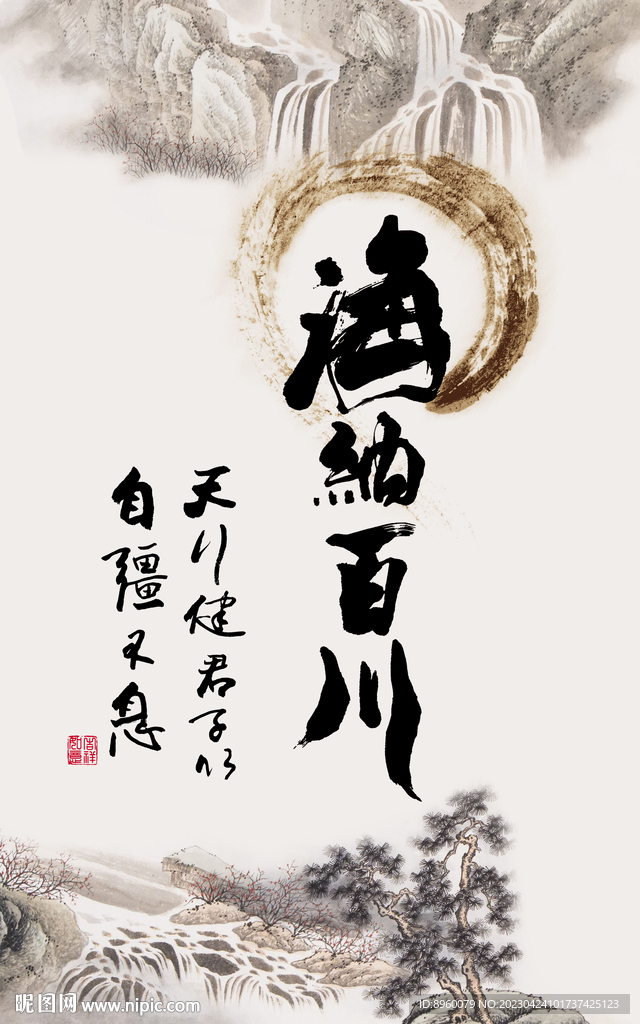 海納百川
天行健君子以
自疆不息
吉祥
如意
昵图网 www.nipic.com
ID:8960079 NO:20230424101737425123